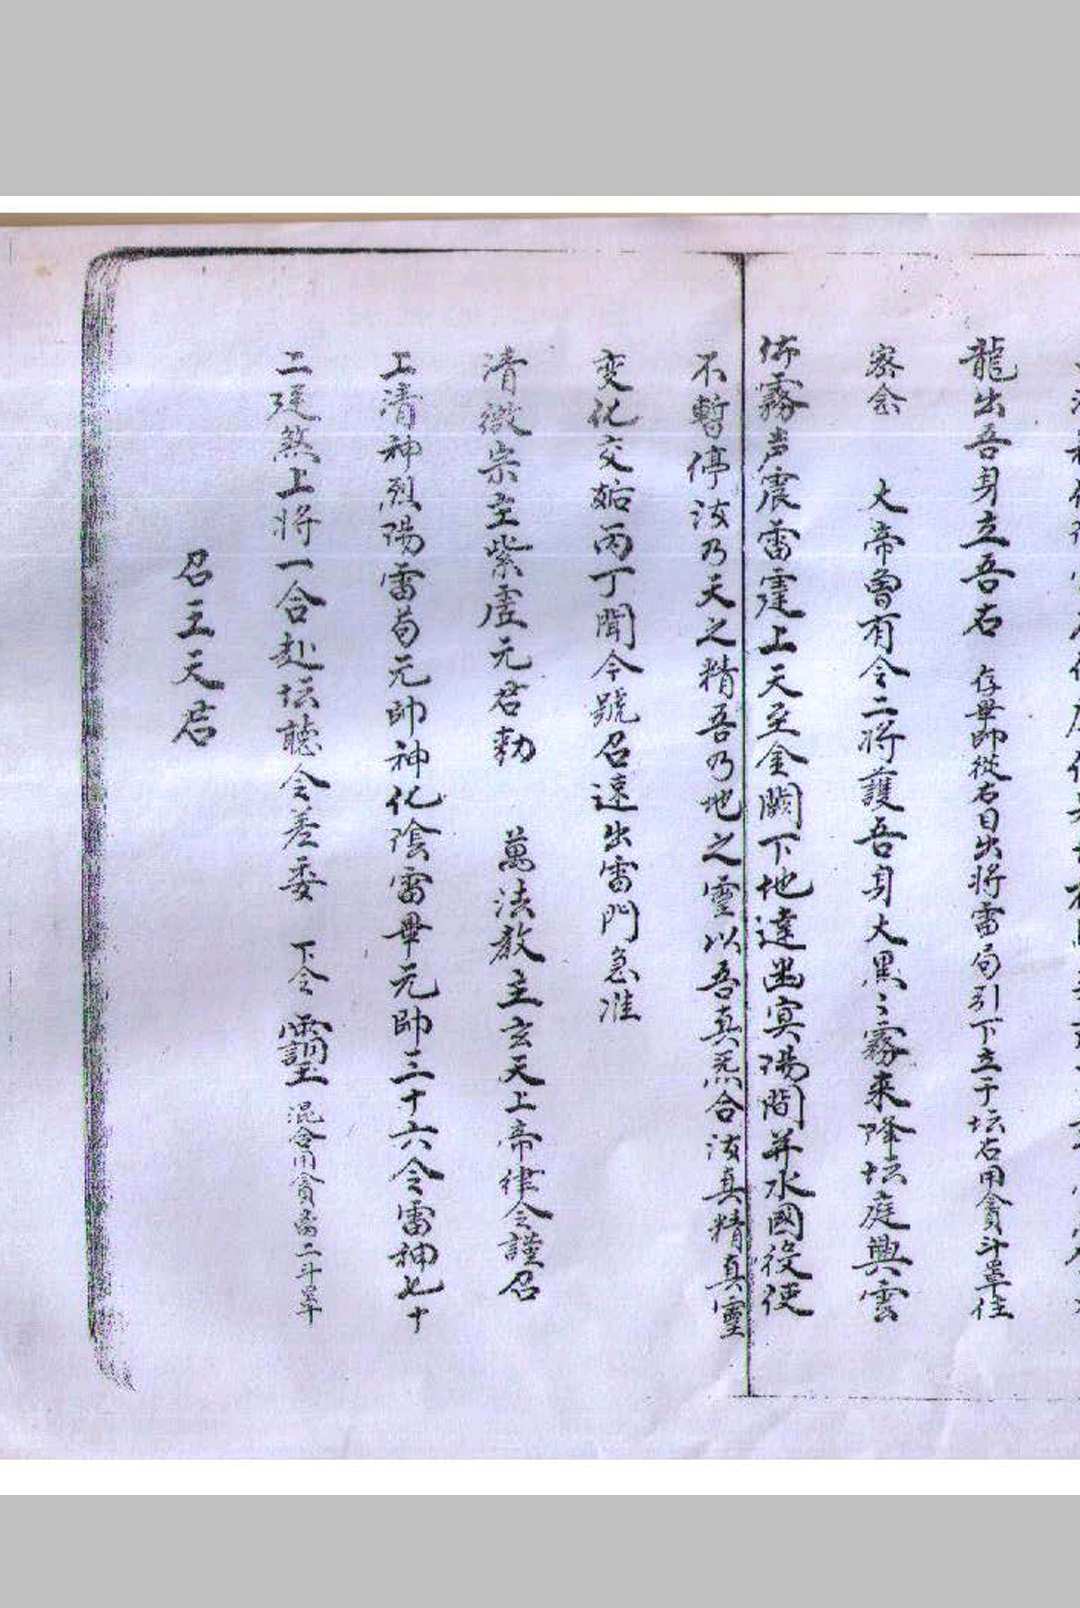 龍出吾身立吾右 存畢帥從右目出將雷局引下立于坛右用貪斗罩住
察会 大帝曾有令二将護吾身大黑〻霧来降坛庭興雲
佈霧声震雷霆上天至金闕下地達幽冥陽間并水國役使
不暫停汝乃天之精吾乃地之霊以吾真炁合汝真精真霊
变化交姤丙丁聞令號召速出雷門急准
清微宗主紫虚元君勅 萬法教主玄天上帝律令謹召
上清神烈陽雷苟元帥神化陰雷畢元帥三十六令雷神七十
二廷煞上将一合赴坛聴令差委 下令 混合用貪雷二斗罩
召王天君